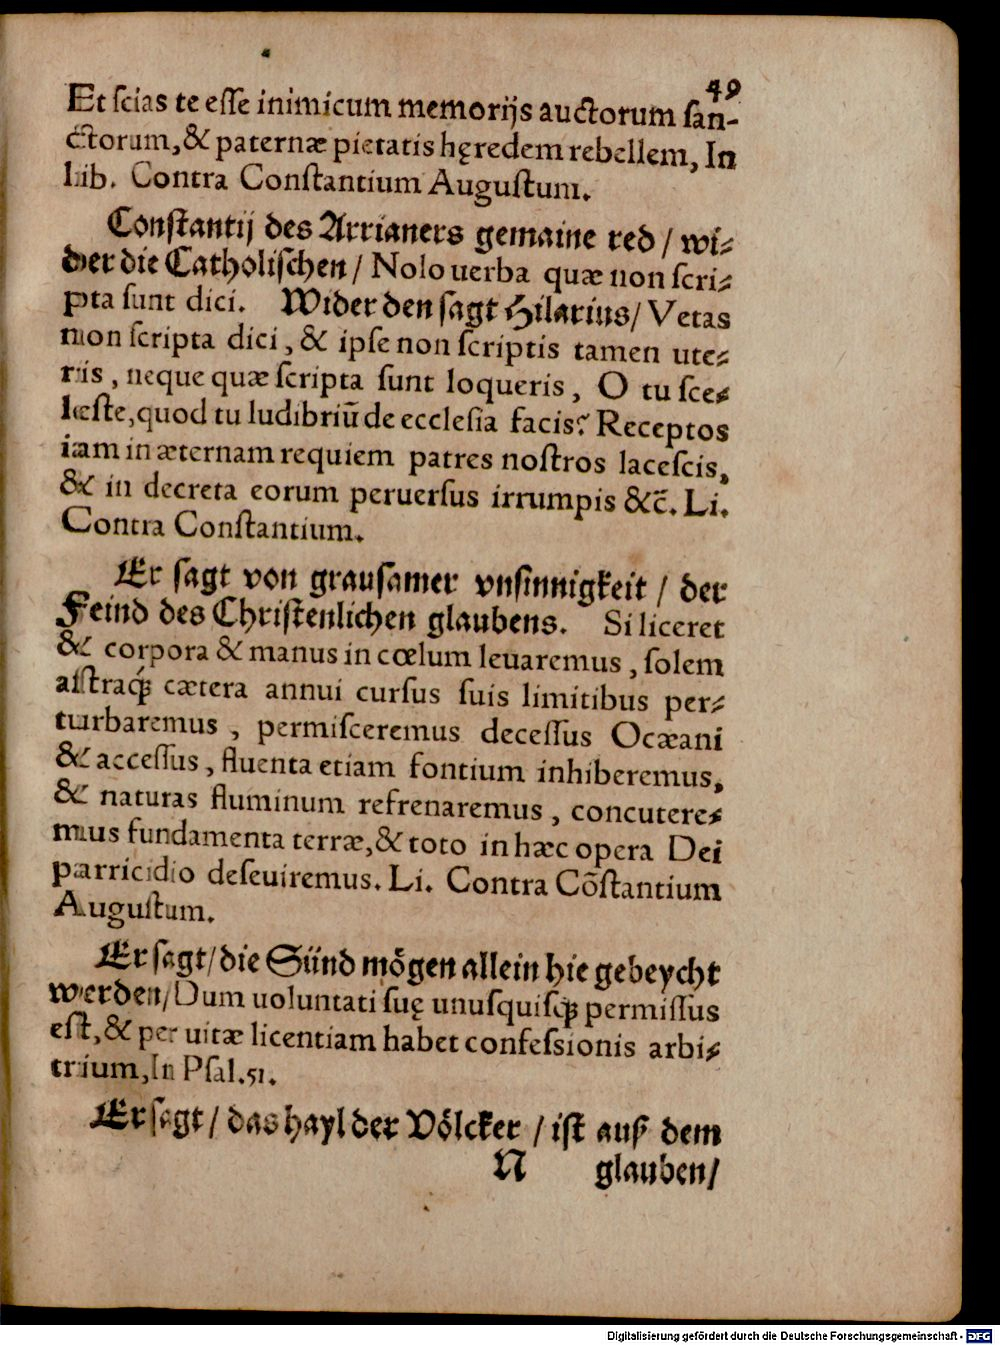 49
Et ſcias te eſſe inimicum memorijs auctorum ſan-
ctorum, & paternæ pietatis hęredem rebellem, In
lib. Contra Conſtantium Auguſtum.
Conſtantij des Arrianers gemaine red / wi⸗
der die Catholiſchen / Nolo uerba quæ non ſcri⸗
pta ſunt dici. Wider den ſagt Hilarius / Vetas
non ſcripta dici, & ipſe non ſcriptis tamen ute⸗
ris, neque quæ ſcripta ſunt loqueris, O tu ſce⸗
leſte, quod tu ludibriū de eccleſia facis? Receptos
iam in æternam requiem patres noſtros laceſcis,
& in decreta eorum peruerſus irrumpis &c̄. Li.
Contra Conſtantium.
Er ſagt von grauſamer vnſinnigkeit / der
Feind des Chriſtenlichen glaubens. Si liceret
& corpora & manus in cœlum leuaremus, ſolem
aſtraq́ꝫ cætera annui curſus ſuis limitibus per⸗
turbaremus, permiſceremus deceſſus Ocæani
& acceſſus, fluenta etiam fontium inhiberemus,
& naturas fluminum refrenaremus, concutere⸗
mus fundamenta terræ, & toto in hæc opera Dei
parricidio deſeuiremus. Li. Contra Cōſtantium
Auguſtum.
Er ſagt / die Sünd moͤgen allein hie gebeycht
werden / Dum uoluntati ſuę unuſquiſq́ꝫ permiſſus
eſt, & per uitæ licentiam habet confeſsionis arbi⸗
trium, In Pſal. 51.
Er ſagt / das hayl der Voͤlcker / iſt auß dem
N glauben /
Digitalisierung gefördert durch die Deutsche Forschungsgemeinschaft - DFG